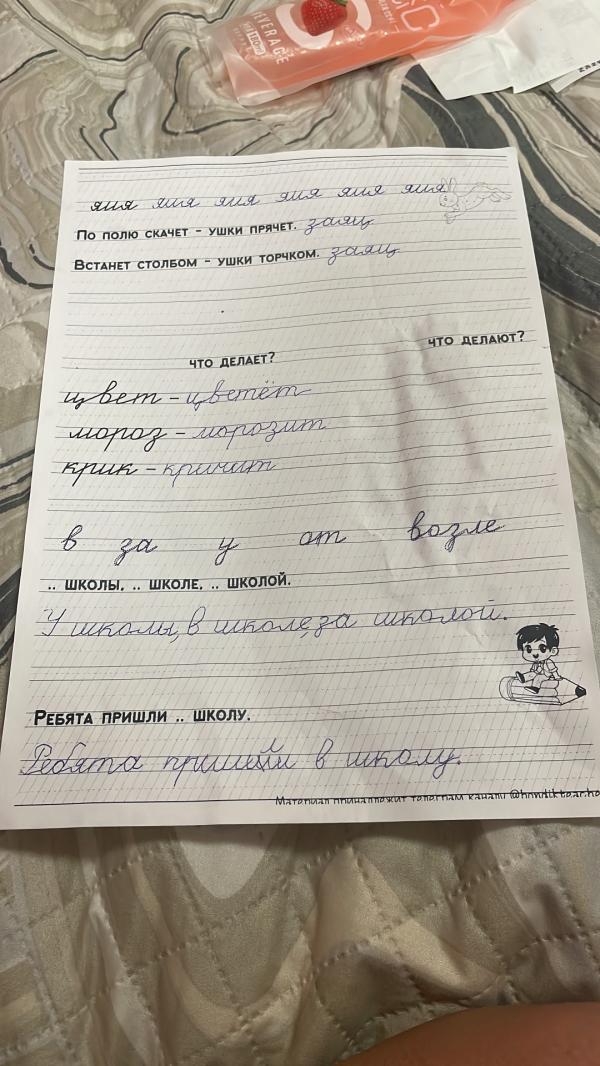 BEVERAGE
яия яия яия яия яия яия
По полю скачет - ушки прячет. заяц
Встанет столбом - ушки торчком. заяц
что делает? что делают?
цвет - цветёт
мороз - морозит
крик - кричит
в за у от возле
.. школы, .. школе, .. школой.
У школы, в школе, за школой.
Ребята пришли .. школу.
Ребята пришли в школу.
Материал принадлежит телеграм каналу